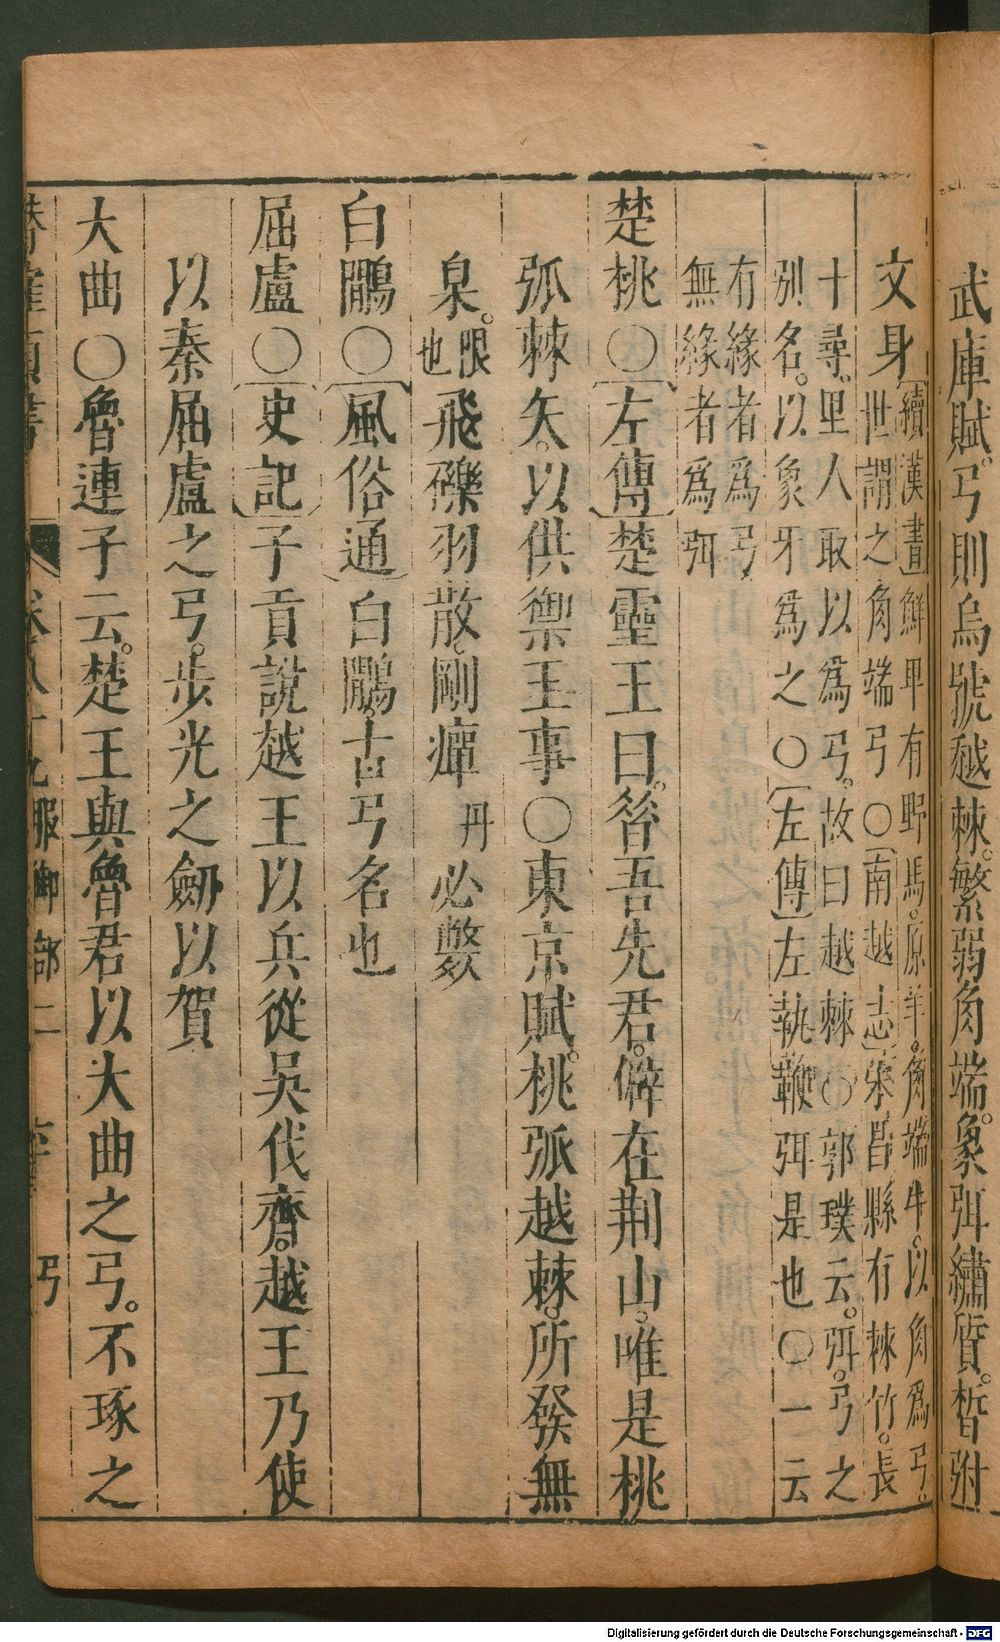 武庫賦。弓則烏號越棘。繁弱角端。象弭繡質。晳弣
文身〔續漢書〕鮮卑有野馬。原羊。角端牛。以角爲弓。
世謂之角端弓〇〔南越志〕宋昌縣有棘竹。長
十尋。里人取以爲弓。故曰越棘〇郭璞云。弭。弓之
別名。以象牙爲之〇〔左傳〕左執鞭弭是也〇一云
有緣者爲弓。
無緣者爲弭
楚桃〇〔左傳〕楚靈王曰。昝吾先君。僻在荆山。唯是桃
弧棘矢。以供禦王事〇東京賦。桃弧越棘。所發無
臬。限也飛礫羽散。剛癉丹必斃
白鷴〇〔風俗通〕白鷴。古弓名也
屈盧〇〔史記〕子貢說越王以兵從吳伐齊。越王乃使
以秦屈盧之弓。步光之劒以賀
大曲〇魯連子云。楚王與魯君以大曲之弓。不琢之
服御部二
弓
Digitalisierung gefördert durch die Deutsche Forschungsgemeinschaft - DFG